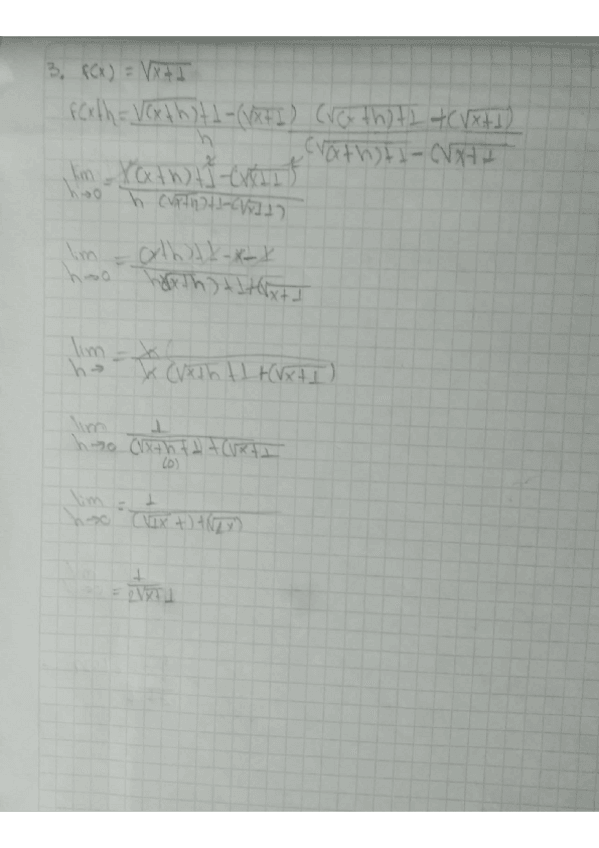 3. f(x) = √x+1
f(x+h = √(x+h)+1 - (√x+1) / h (√(x+h)+1 + (√x+1) / (√(x+h)+1 - (√x+1
lim h→0 = √(x+h)+1² - (√x+1)² / h (√x+h)+1-(√x+1(
lim h→0 = (x+h)+1-x-1 / h(√x+h)+1+(√x+1
lim h→ = h / h (√x+h+1+(√x+1)
lim h→0 1 / (√x+h+1+(√x+1
(0)
lim = 1 /
= 1 / 2√x+1